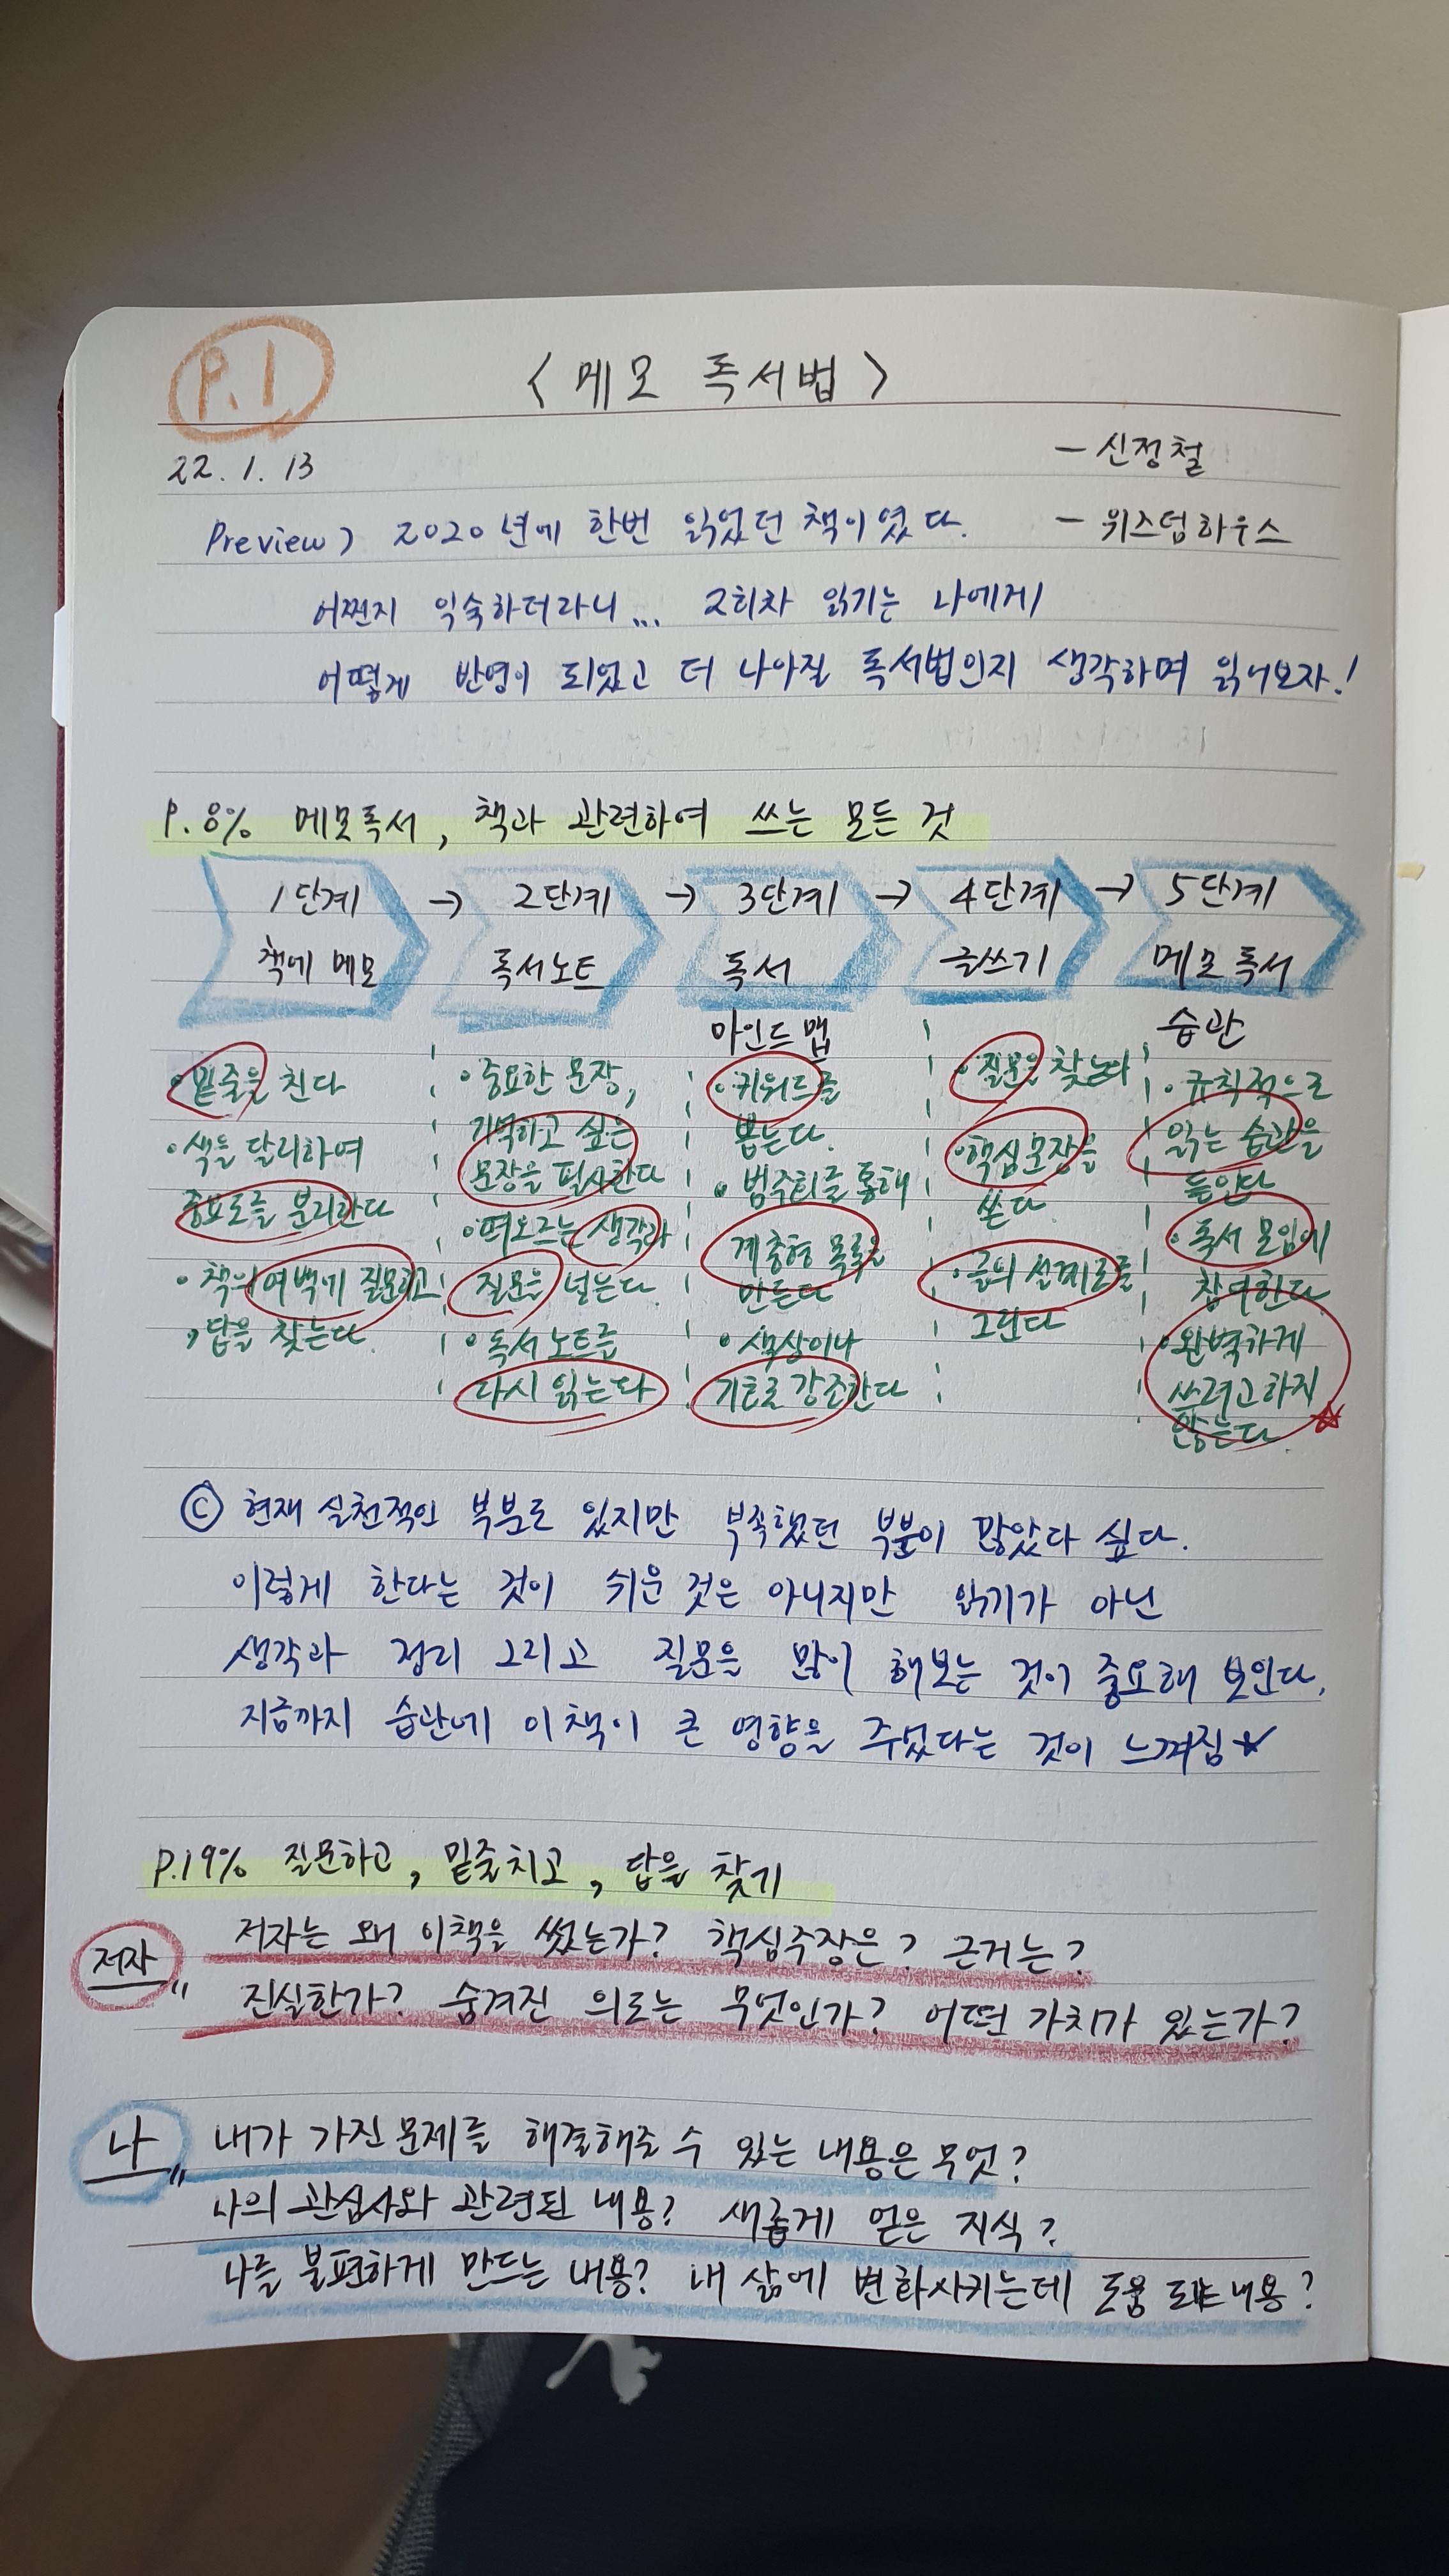 P.1
< 메모 독서법 >
22. 1. 13
- 신정철
Preview) 2020년에 한번 읽었던 책이였다.
- 위즈덤하우스
어쩐지 익숙하더라니... 2회차 읽기는 나에게
어떻게 반영이 되었고 더 나아질 독서법인지 생각하며 읽어보자!
P.8% 메모독서, 책과 관련하여 쓰는 모든 것
1단계 → 2단계 → 3단계 → 4단계 → 5단계
책에 메모 독서노트 독서 글쓰기 메모 독서
마인드맵 습관
• 밑줄을 친다
• 색을 달리하여
중요도를 분리한다
• 책의 여백에 질문하고
, 답을 찾는다.
• 중요한 문장,
기억하고 싶은
문장을 필사한다
• 떠오르는 생각과
질문을 넣는다.
• 독서노트를
다시 읽는다
• 키워드를
뽑는다.
• 범주화를 통해
계층형 목록을
만든다
• 색상이나
기호로 강조한다
• 질문을 찾는다
• 핵심문장을
쓴다
• 글의 설계도를
그린다
• 규칙적으로
읽는 습관을
들인다
• 독서 모임에
참여한다
• 완벽하게
쓰려고 하지
않는다.
ⓒ 현재 실천적인 부분도 있지만 부족했던 부분이 많았다 싶다.
이렇게 한다는 것이 쉬운 것은 아니지만 읽기가 아닌
생각과 정리 그리고 질문을 많이 해보는 것이 중요해 보인다.
지금까지 습관에 이 책이 큰 영향을 주었다는 것이 느껴짐☆
P.19% 질문하고, 밑줄치고, 답을 찾기
저자는 왜 이책을 썼는가? 핵심주장은? 근거는?
저자
" 진실한가? 숨겨진 의도는 무엇인가? 어떤 가치가 있는가?
나 내가 가진 문제를 해결해줄 수 있는 내용은 무엇?
" 나의 관심사와 관련된 내용? 새롭게 얻은 지식?
나를 불편하게 만드는 내용? 내 삶에 변화시키는데 도움 되는 내용?